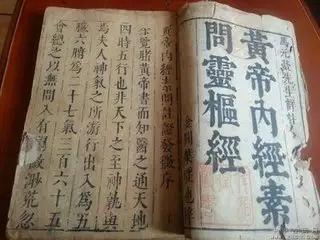 馬元臺先生
黃帝內經素
問靈樞經
黃帝內經素問註證發微序
余覽黃帝書而知醫之通天地
四時五行也非天下之至神孰與
焉夫人神氣之所游行出入爲五
臟六腑爲二十七氣三百六十五
會總之以無間入有荒忽